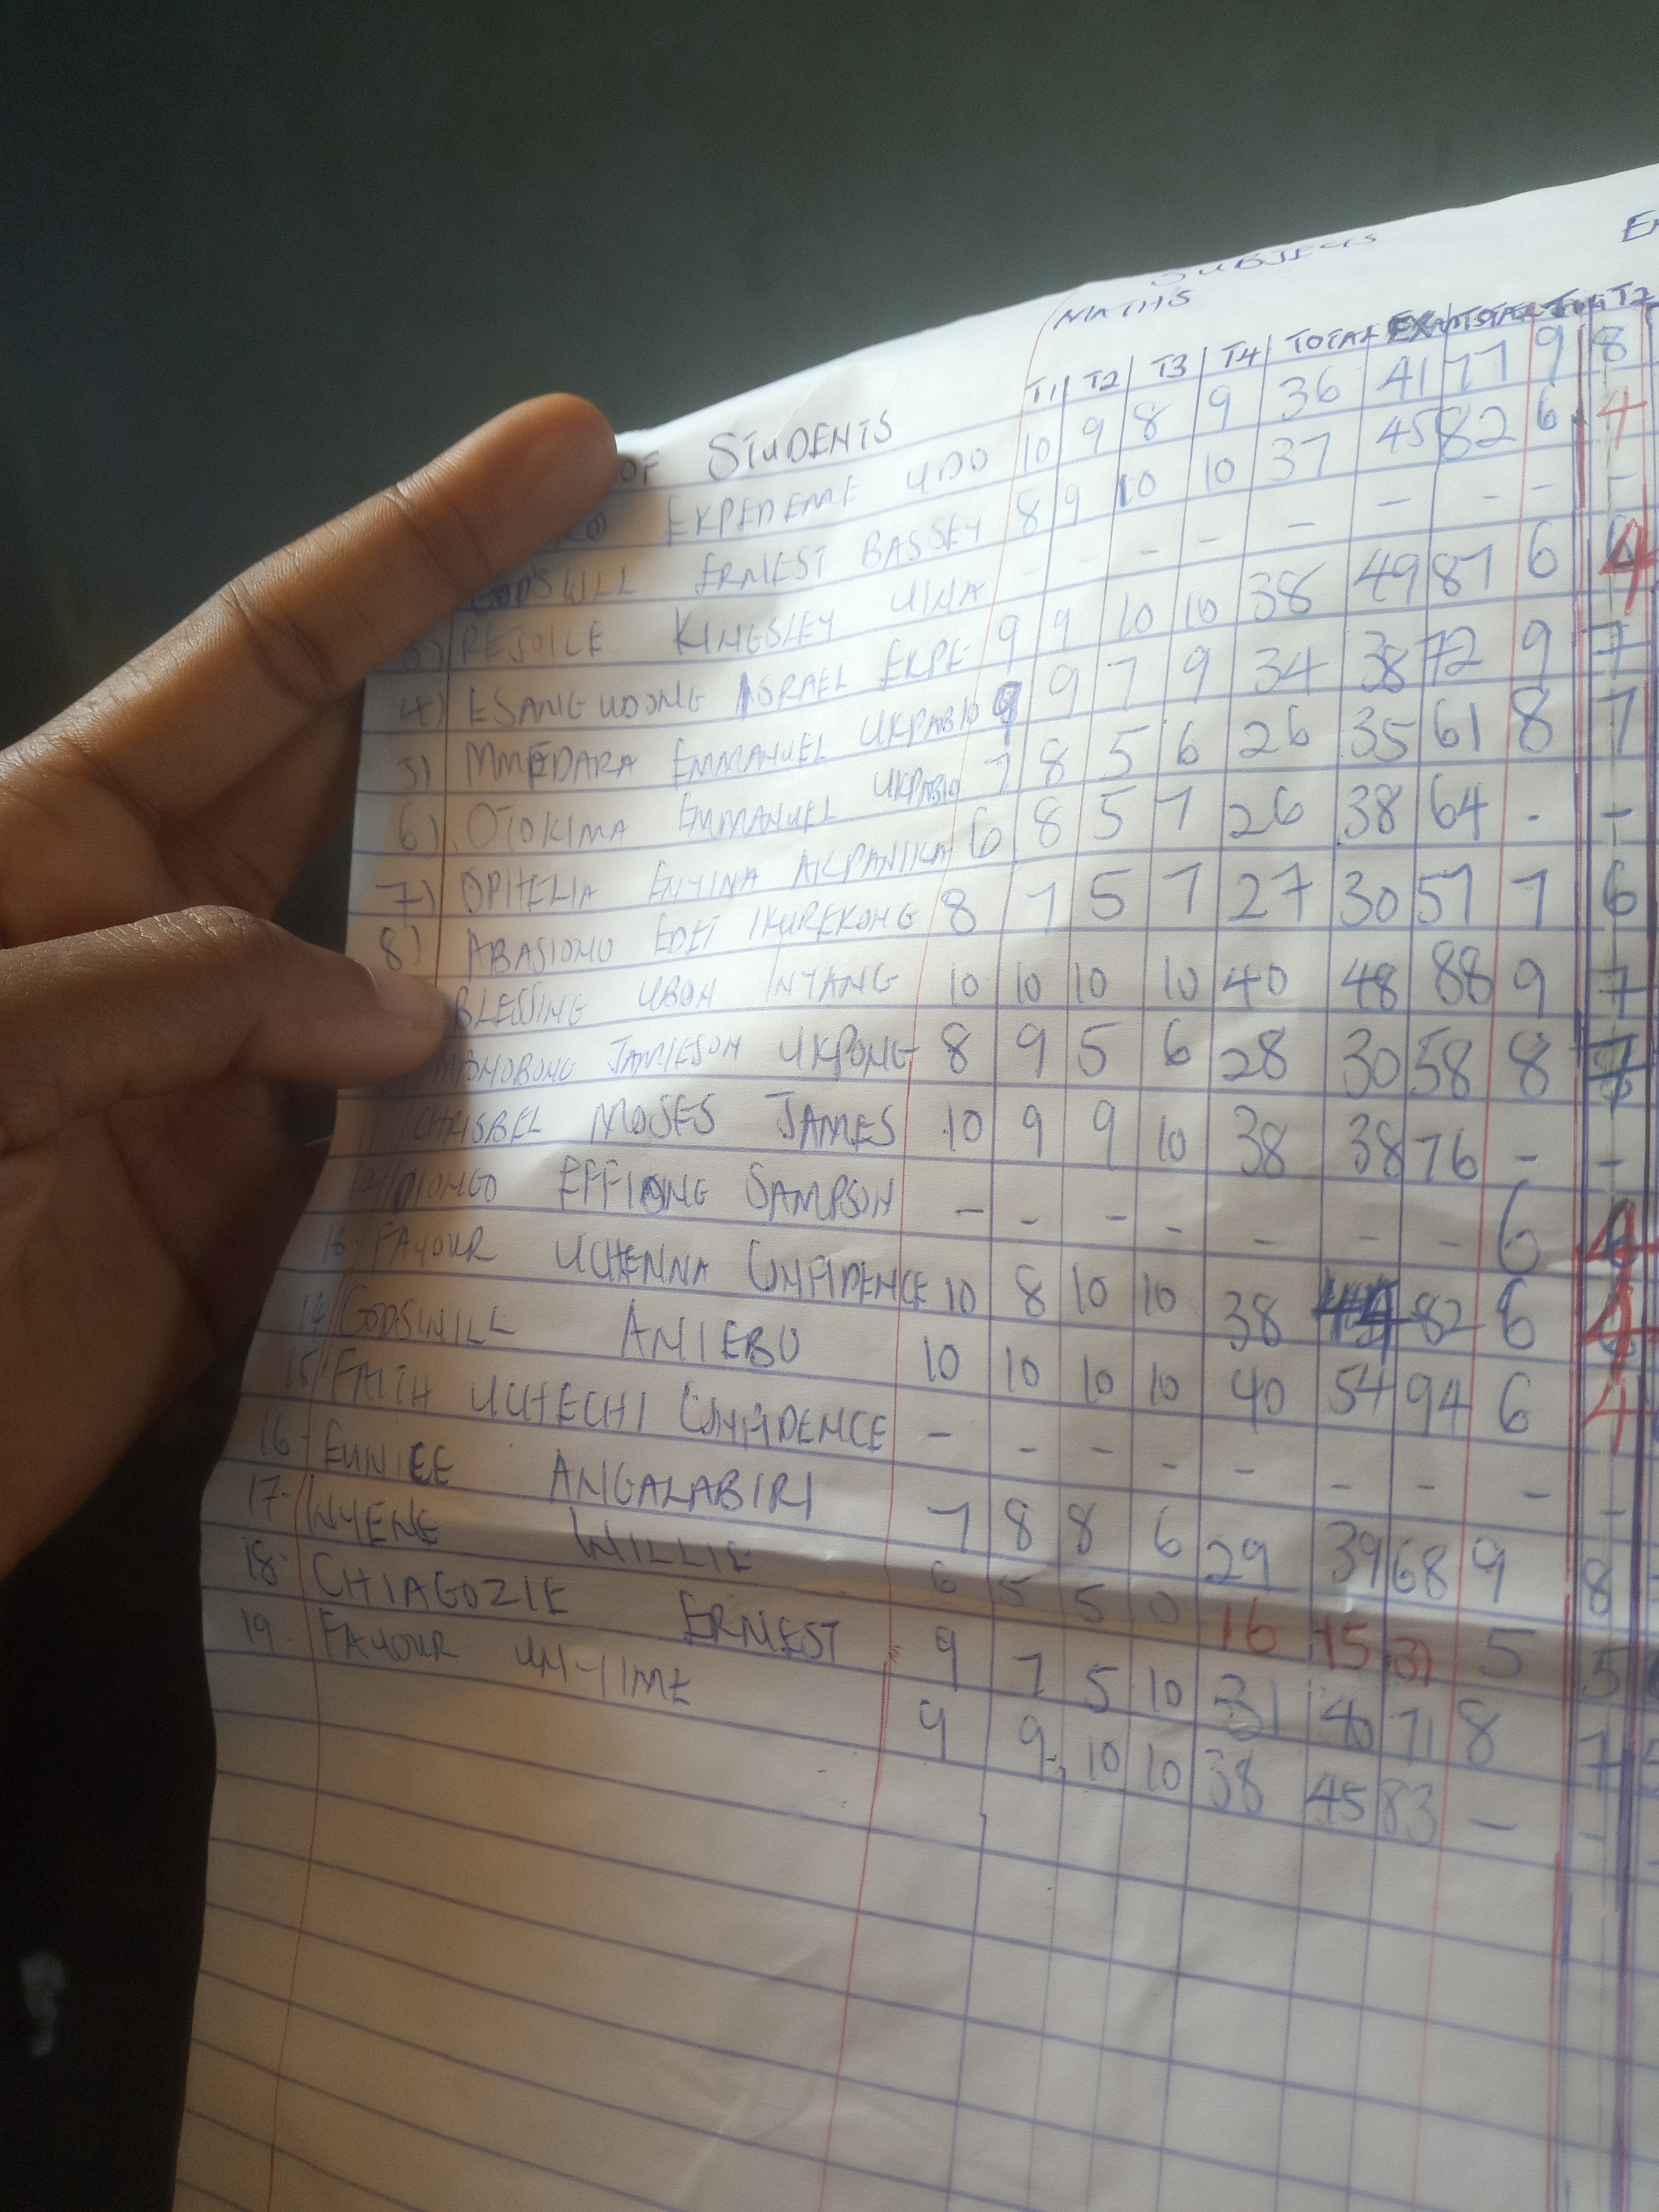 SUBJECTS
MATHS
T1 T2 T3 T4 TOTAL EXAM TOTAL T2
OF STUDENTS
EKPEDEME UDO 10 9 8 9 36 41 77 9 8
GODSWILL ERNEST BASSEY 8 9 10 10 37 45 82 6 4
REJOICE KINGSLEY UMA - - - - - - - - -
4) ESANGUDONG ISRAEL EKPE 9 9 10 10 38 49 87 6 4
5) MMEDARA EMMANUEL UKPABIO 9 9 7 9 34 38 72 9 7
6) OTOKIMA EMMANUEL UKPABIO 7 8 5 6 26 35 61 8 7
7) OPHELIA ENYINA AKPANIKA 6 8 5 7 26 38 64 - -
8) ABASIONO EDET IKUREKONG 8 7 5 7 27 30 57 7 6
BLESSING UBOH INYANG 10 10 10 10 40 48 88 9 7
JAMIESON UKPONG 8 9 5 6 28 30 58 8 7
CHRISBEL MOSES JAMES 10 9 9 10 38 38 76 - -
12 DIONGO EFFIONG SAMPSON - - - - - - - 6 4
13 FAVOUR UCHENNA CONFIDENCE 10 8 10 10 38 44 82 6 4
14 GODSWILL ANIEBO 10 10 10 10 40 54 94 6 4
15 FAITH UCHECHI CONFIDENCE - - - - - - - - -
16 EUNICE ANGALABIRI 7 8 8 6 29 39 68 9 8
17- INYENE WILLIE 6 5 5 0 16 15 31 5 5
18- CHIAGOZIE ERNEST 9 7 5 10 31 40 71 8 7
19- FAVOUR UNYIME 9 9 10 10 38 45 83 - -